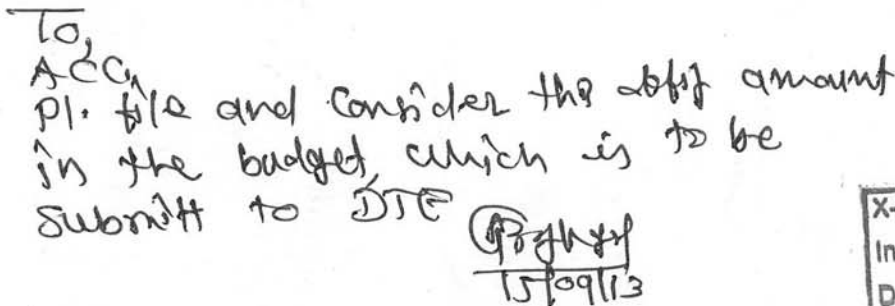 To,
ACC,
Pl. file and consider the amount
in the budget, which is to be
submitt to DTE
15/09/13
X-
In